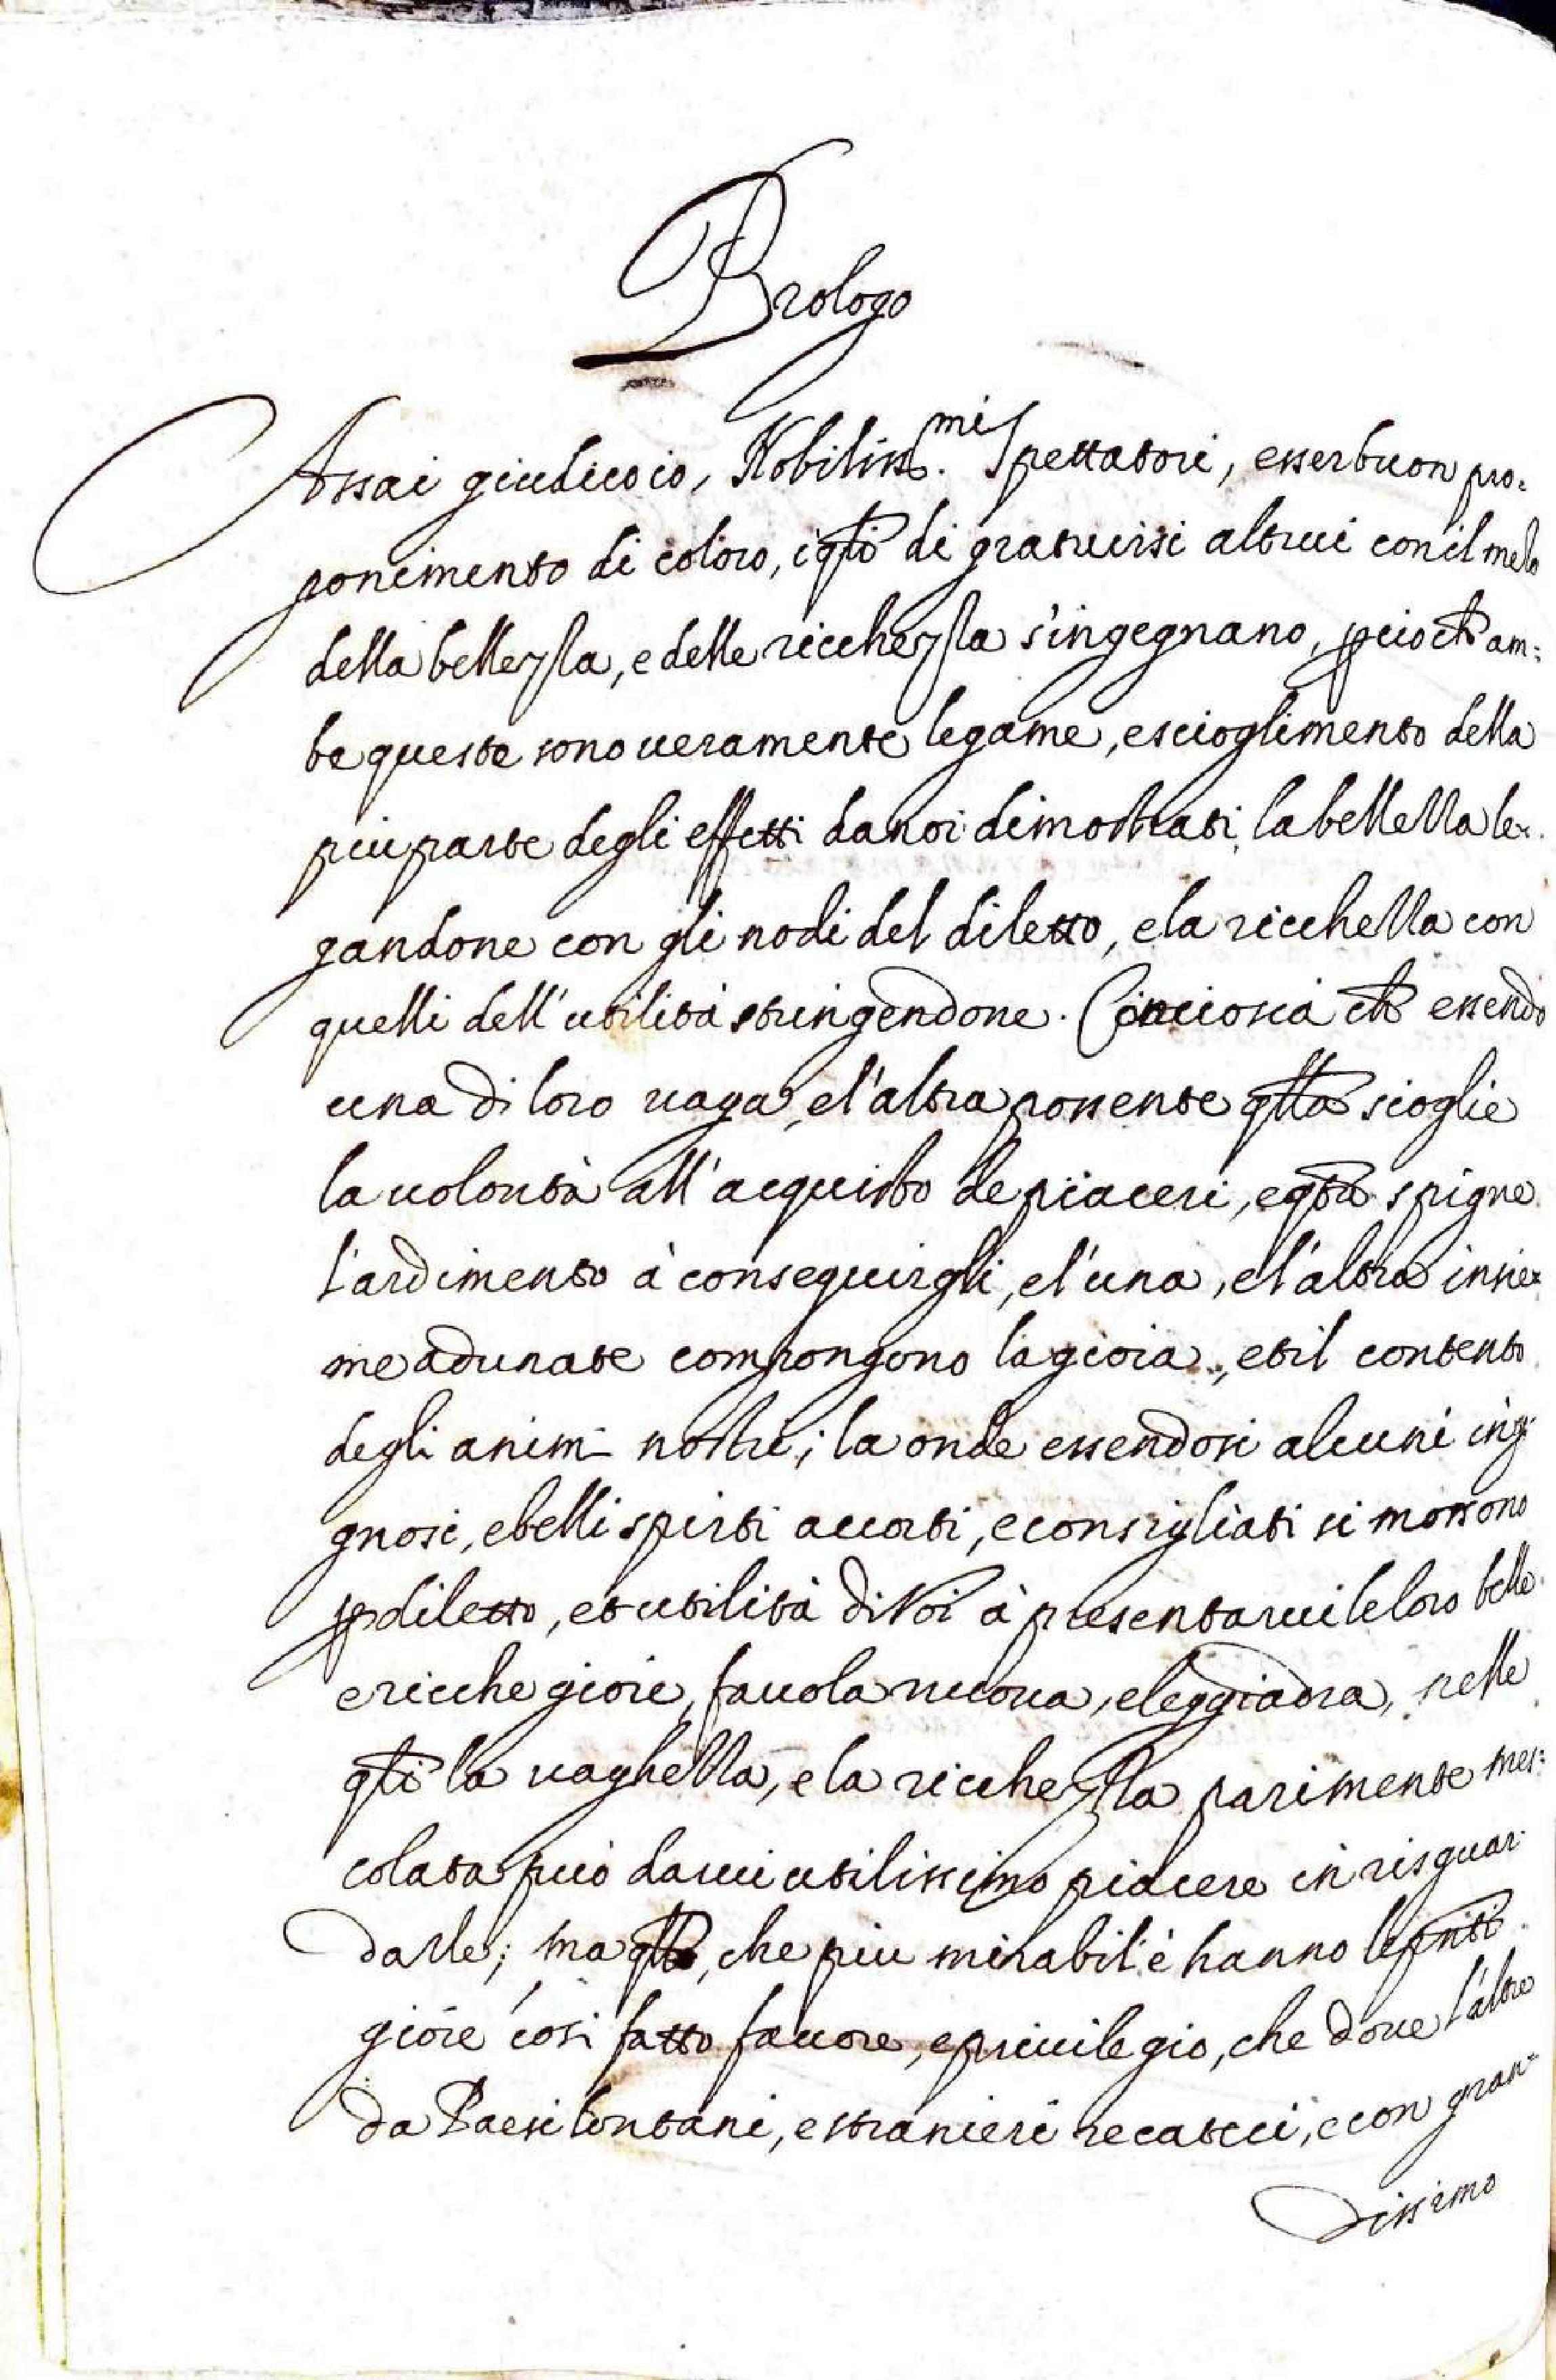 Prologo
Assai giudico io, Nobiliss.mi Spettatori, esser buon pro=
ponimento di coloro, i qli di gratuirsi altrui con il mezo
della bellezza, e delle ricchezza s'ingegnano, pciochè am=
be queste sono ueramente legame, e scioglimento della
piu parte degli effetti da noi dimostrati, la bellezza le=
gandone con gli nodi del diletto, e la ricchezza con
quelli dell'utilità stringendone. Conciosia chè essendo
una di loro uaga, e l'altra possente qlla scioglie
la uolontà all'acquisto de piaceri, e qta spigne
l'ardimento à conseguirgli, e l'una, e l'altra insie=
me adunate compongono la gioia, et il contento
degli animi nostri; la onde essendosi alcuni inge=
gnosi, e belli spirti accorti, e consigliati si mossono
p diletto, et utilità di Voi à presentarui le loro belle
e ricche gioie, fauola nuoua, e leggiadra, nelle
qli la uaghezza, e la ricchezza parimente mes=
colata può darui utilissimo piacere in risguar=
darle; ma qllo, che piu mirabil' è hanno le pnti
gioie così fatto fauore, e priuilegio, che doue l'altre
da Paesi lontani, e stranieri recateci, e con gran=
dissimo